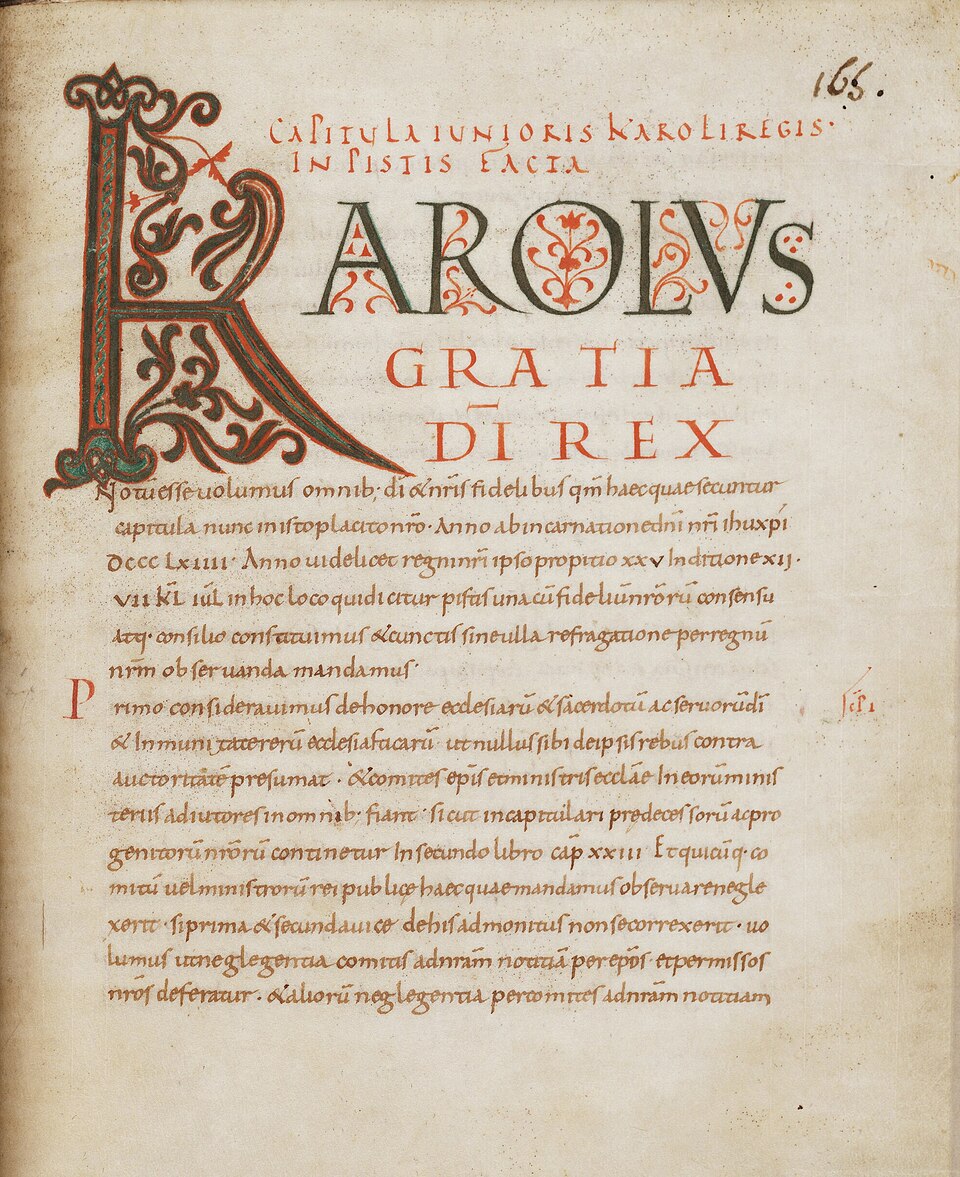 165.
CAPITULA IUNIORIS KAROLI REGIS·
IN PISTIS FACTA
KAROLVS
GRATIA
DĪ REX
Notū esse uolumus omnib; dī & nrīs fidelibus qm̄ haec quae secuntur
capitula nunc in isto placito nrō· Anno ab incarnatione dnī nrī ihū xpī
DCCC LXIIII· Anno uidelicet regni nrī ipso propitio xxv Indictione xii·
vii KL iūl in hoc loco qui dicitur pistis una cū fideliū nrōrū consensu
atq· consilio constituimus & cunctis sine ulla refragatione per regnū
nrm̄ obseruanda mandamus·
Primo considerauimus de honore ecclesiarū & sacerdotū ac seruorū dī
& Inmunitate rerū ecclesiasticarū· ut nullus sibi de ipsis rebus contra
auctoritatē presumat· & comites epīs et ministris ecclāe In eorū minis
teriis adiutores in omnib· fiant· sicut in capitulari predecessorū ac pro
genitorū nrōrū continetur In secundo libro cap̄ xxiii Et quicūq· co
mitū uel ministrorū rei publicę haec quae mandamus obseruare negle
xerit· si prima & secunda uice de his admonitus non se correxerit· uo
lumus ut neglegentia comitis ad nrām notitiā per epōs et per missos
nrōs deferatur· & aliorū neglegentia per comites ad nrām notitiam